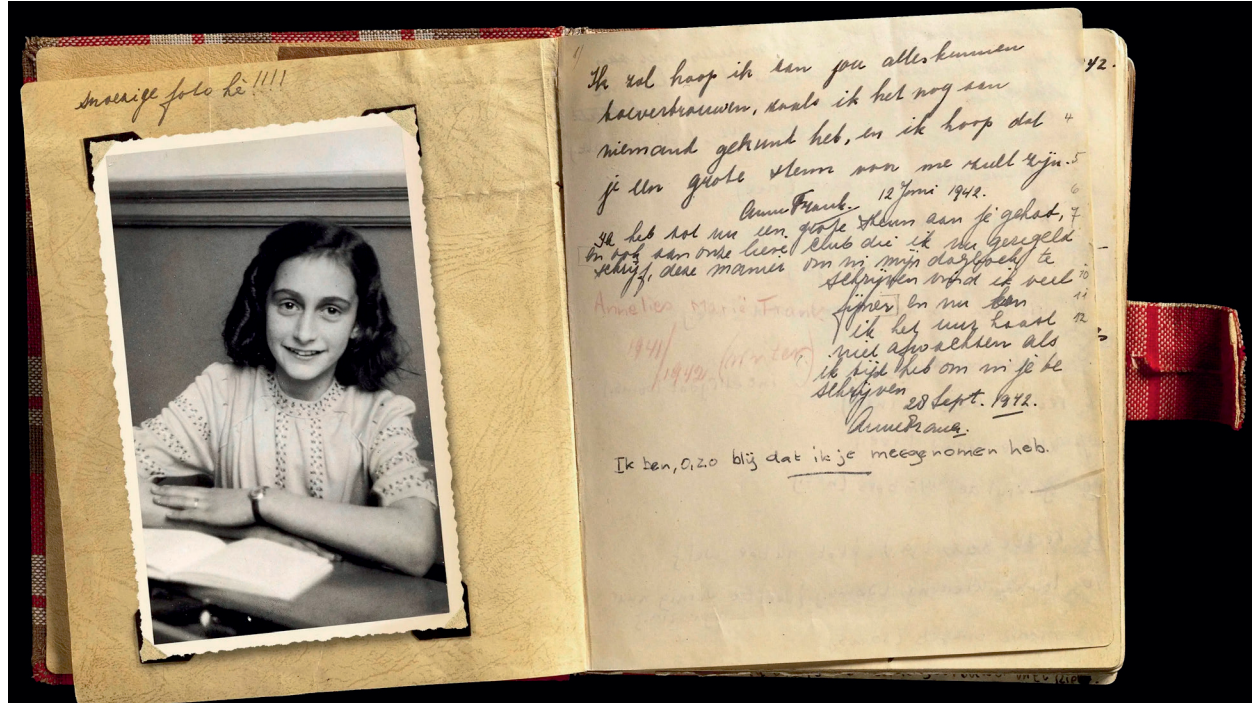 snoezige foto hè!!!!
42.
Ik zal hoop ik aan jou alles kunnen
toevertrouwen, zoals ik het nog aan
niemand gekund heb, en ik hoop dat 4
je een grote steun voor me zult zijn. 5
Anne Frank. 12 Juni 1942. 6
Ik heb tot nu een grote steun aan je gehad, 7
en ook aan onze lieve club die ik nu geregeld
schrijf, deze manier om in mijn dagboek te
schrijven vind ik veel 10
fijner en nu kan 11
ik het uur haast 12
niet afwachten als
ik tijd heb om in je te
schrijven
28 Sept. 1942.
Anne Frank.
Ik ben, o, zo blij dat ik je meegenomen heb.
Annelies Marie Frank
1941/
1942 (winter)